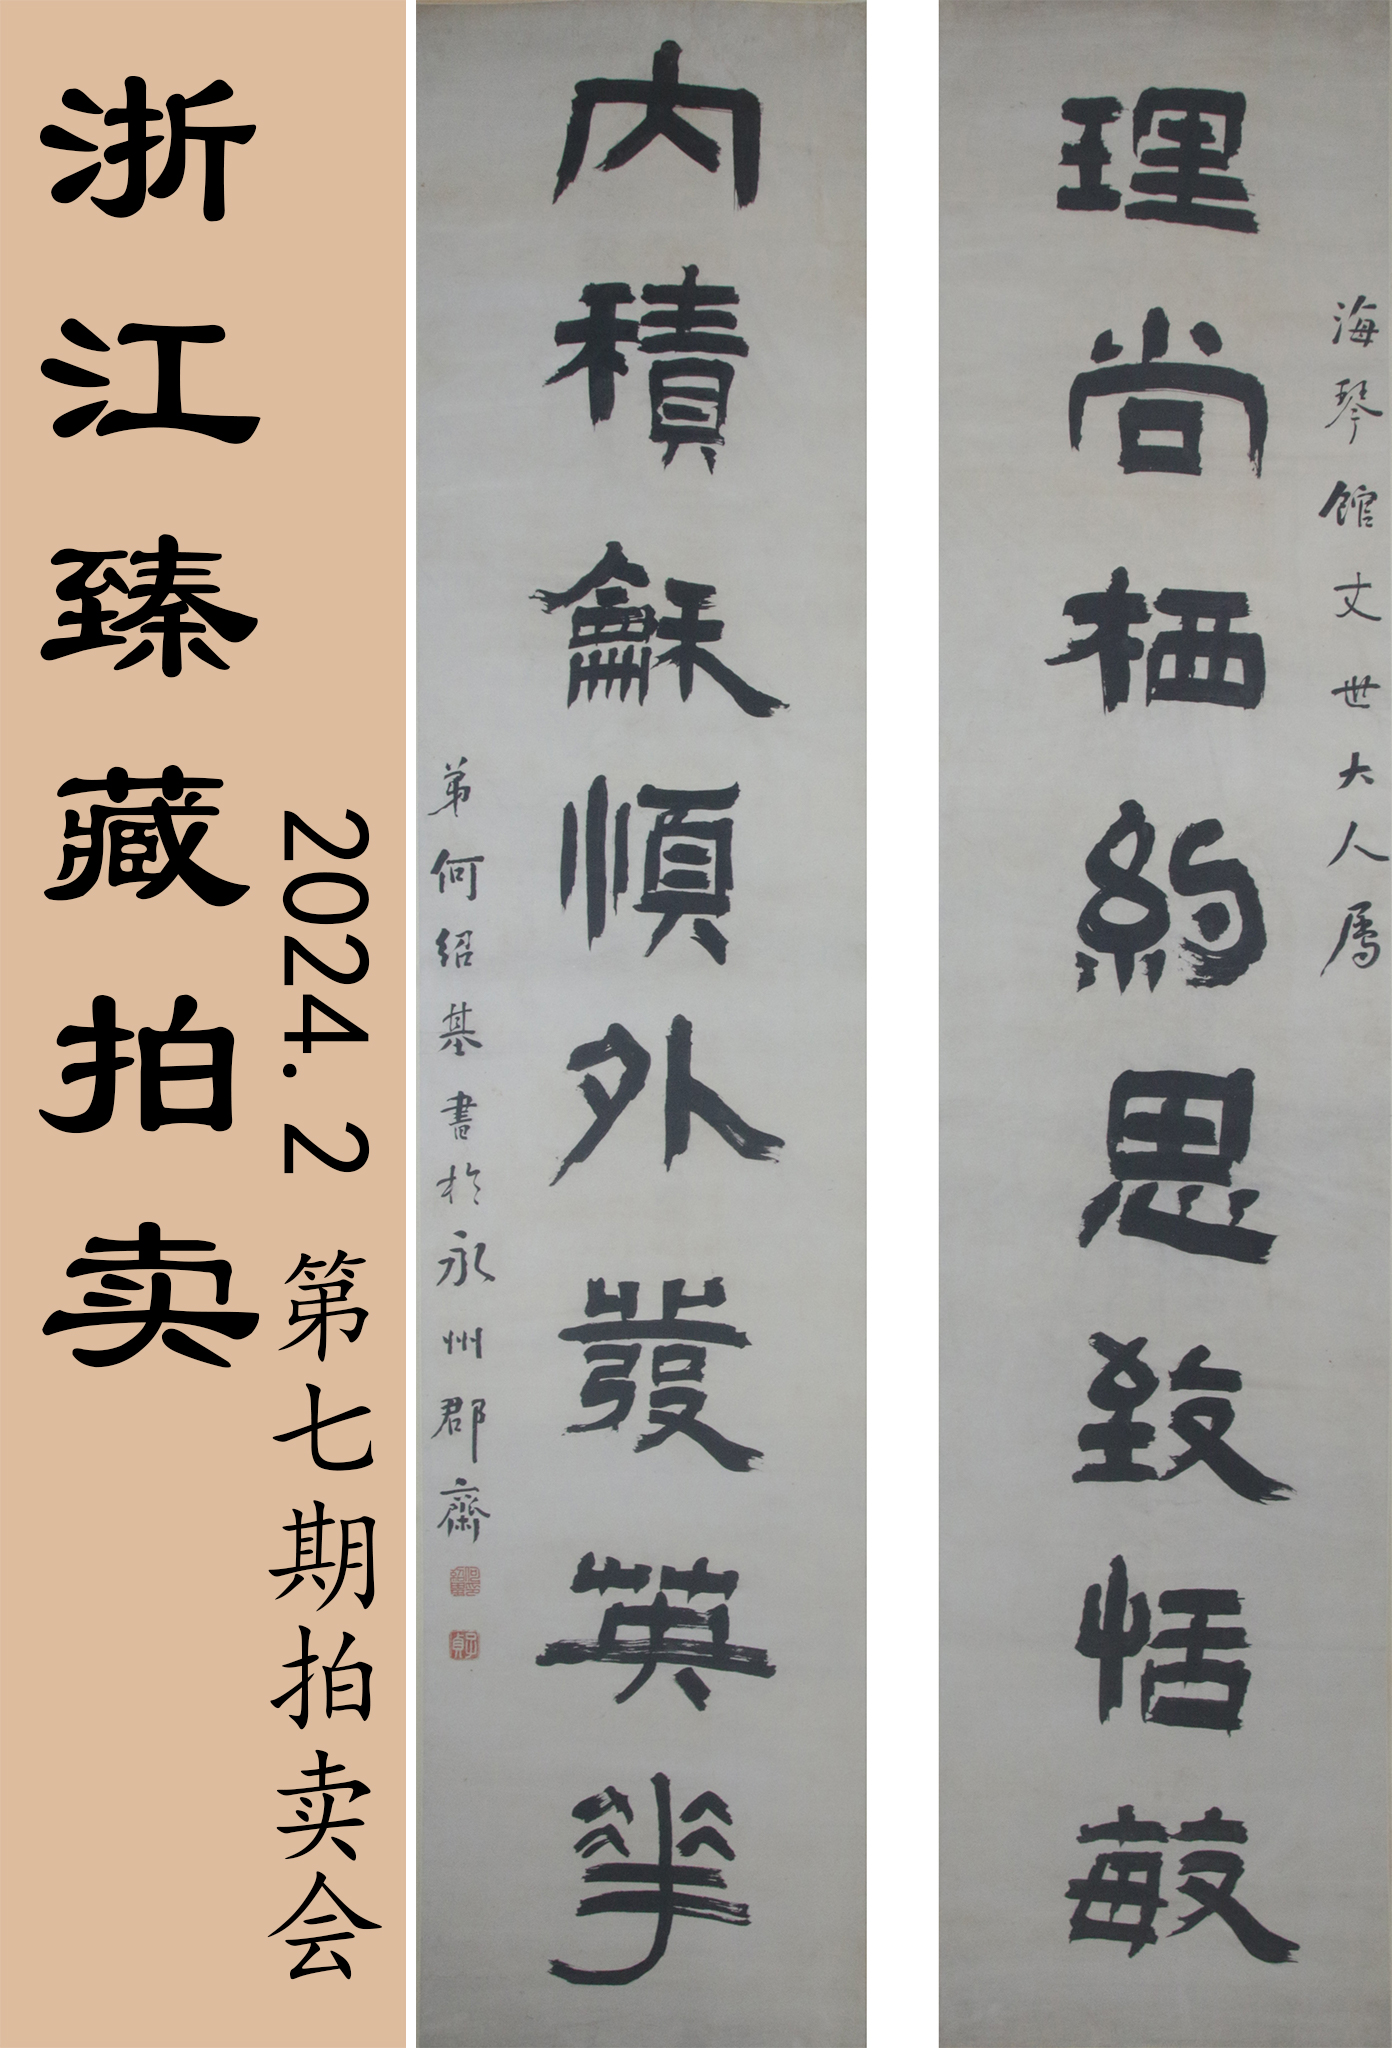 浙江臻藏拍卖
2024.2 第七期拍卖会
海琴馆丈世大人属
理尚栖約思致恬敏
内積龢順外發英華
弟何绍基書於永州郡齋